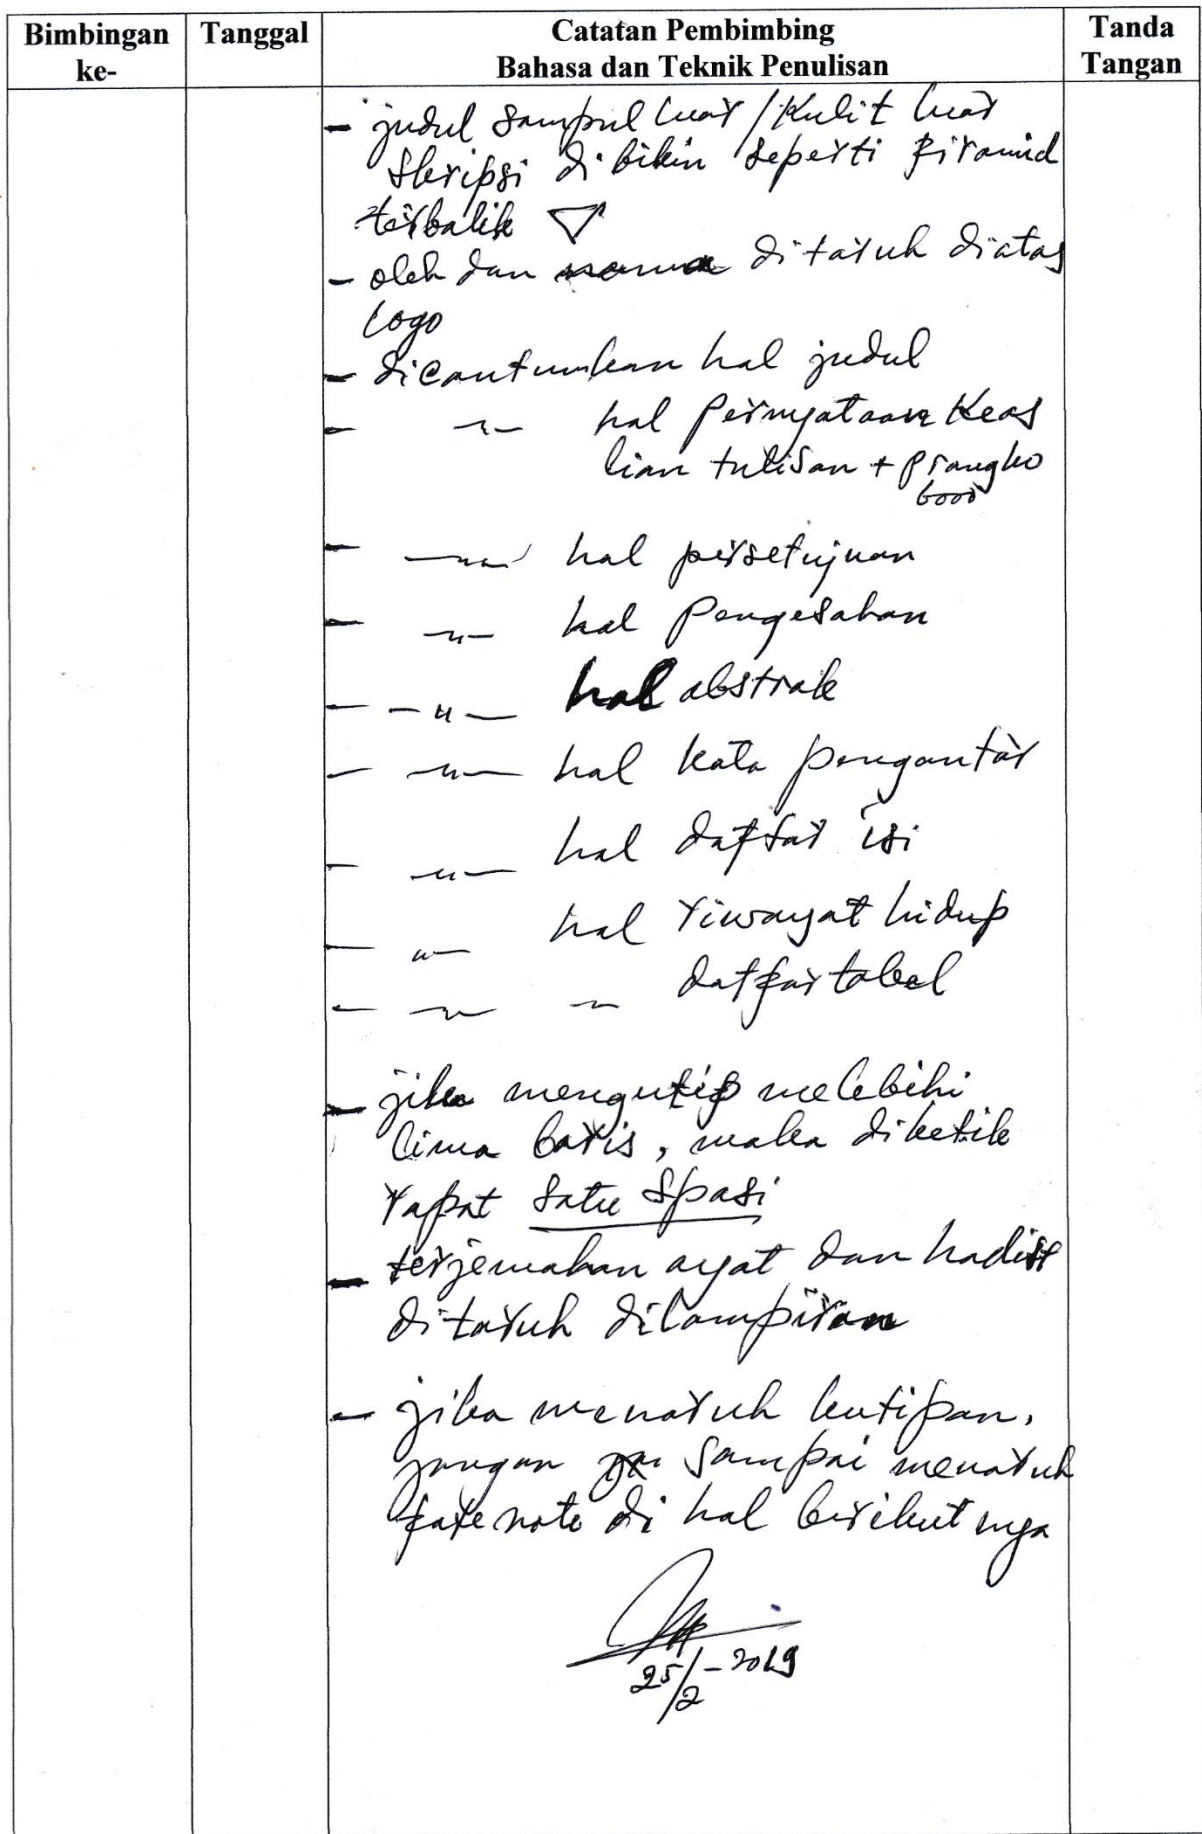 Bimbingan ke-
Tanggal
Catatan Pembimbing
Bahasa dan Teknik Penulisan
Tanda Tangan
- judul sampul luar / Kulit luar
skripsi dibikin seperti piramid
terbalik ▽
- oleh dan nama ditaruh diatas
logo
- dicantumkan hal judul
- -〃- hal pernyataan Keas
lian tulisan + prangko
6000
- -〃- hal persetujuan
- -〃- hal Pengesahan
- -〃- hal abstrak
- -〃- hal kata pengantar
- -〃- hal daftar isi
- -〃- hal riwayat hidup
- -〃- 〃 daftar tabel
- jika mengutip melebihi
lima baris, maka diketik
rapat satu spasi
- terjemahan ayat dan hadist
ditaruh dilampiran
- jika menaruh kutipan,
jangan sampai menaruh
di hal berikutnya
25/2-2019